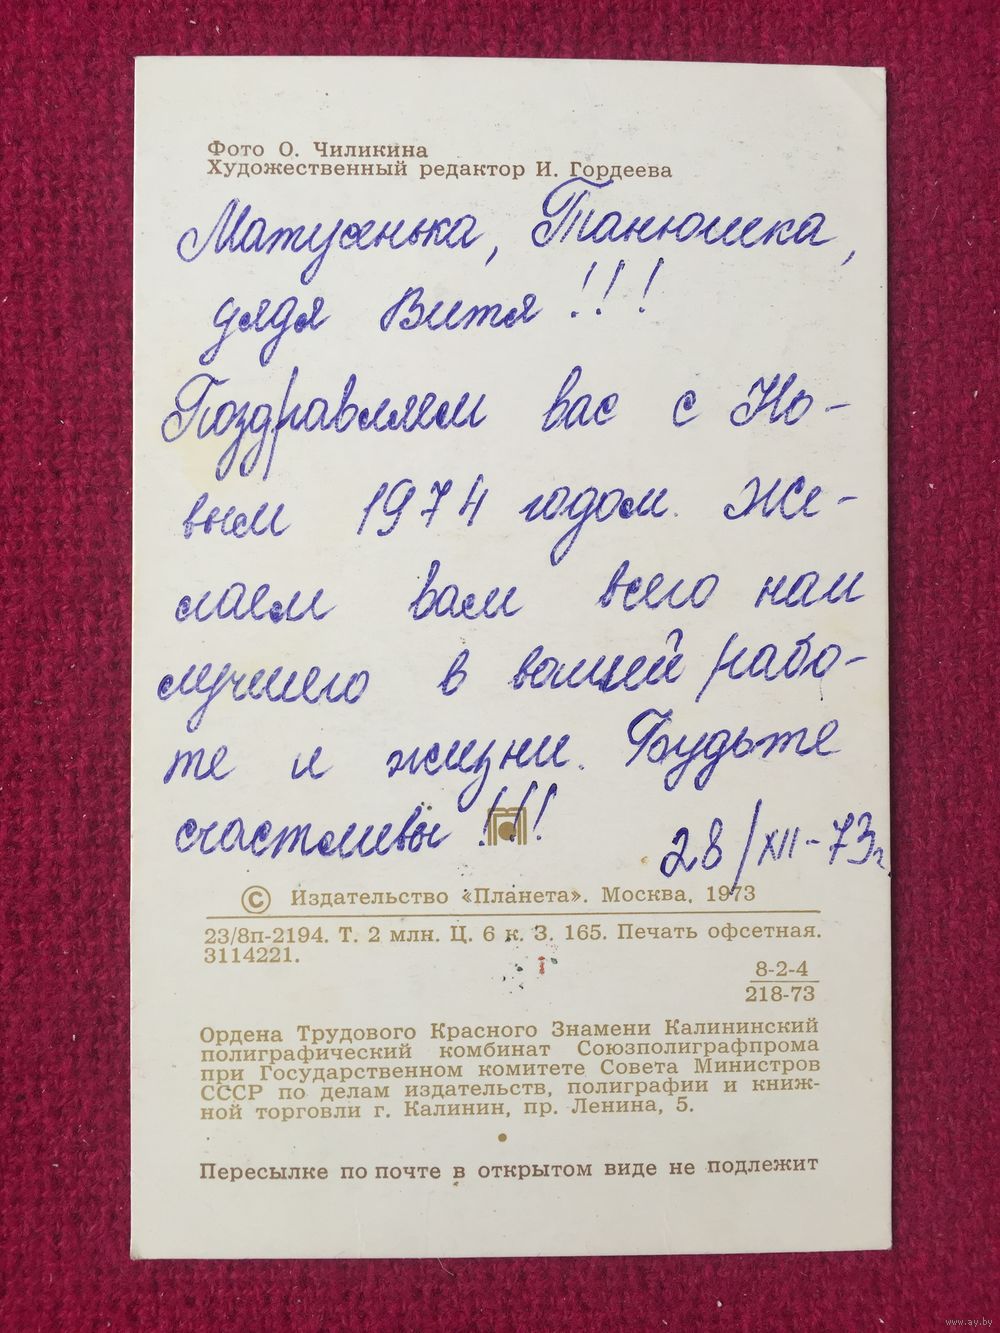 Фото О. Чиликина
Художественный редактор И. Гордеева
Матусенька, Танюшка,
дядя Витя!!!
Поздравляем вас с Но-
вым 1974 годом. Же-
лаем вам всего наи
лучшего в вашей рабо-
те и жизни. Будьте
счастливы!!!
28/XII-73г.
© Издательство «Планета». Москва. 1973
23/8п-2194. Т. 2 млн. Ц. 6 к. З. 165. Печать офсетная.
3114221.
8-2-4
218-73
Ордена Трудового Красного Знамени Калининский
полиграфический комбинат Союзполиграфпрома
при Государственном комитете Совета Министров
СССР по делам издательств, полиграфии и книж-
ной торговли г. Калинин, пр. Ленина, 5.
Пересылке по почте в открытом виде не подлежит
www.ay.by